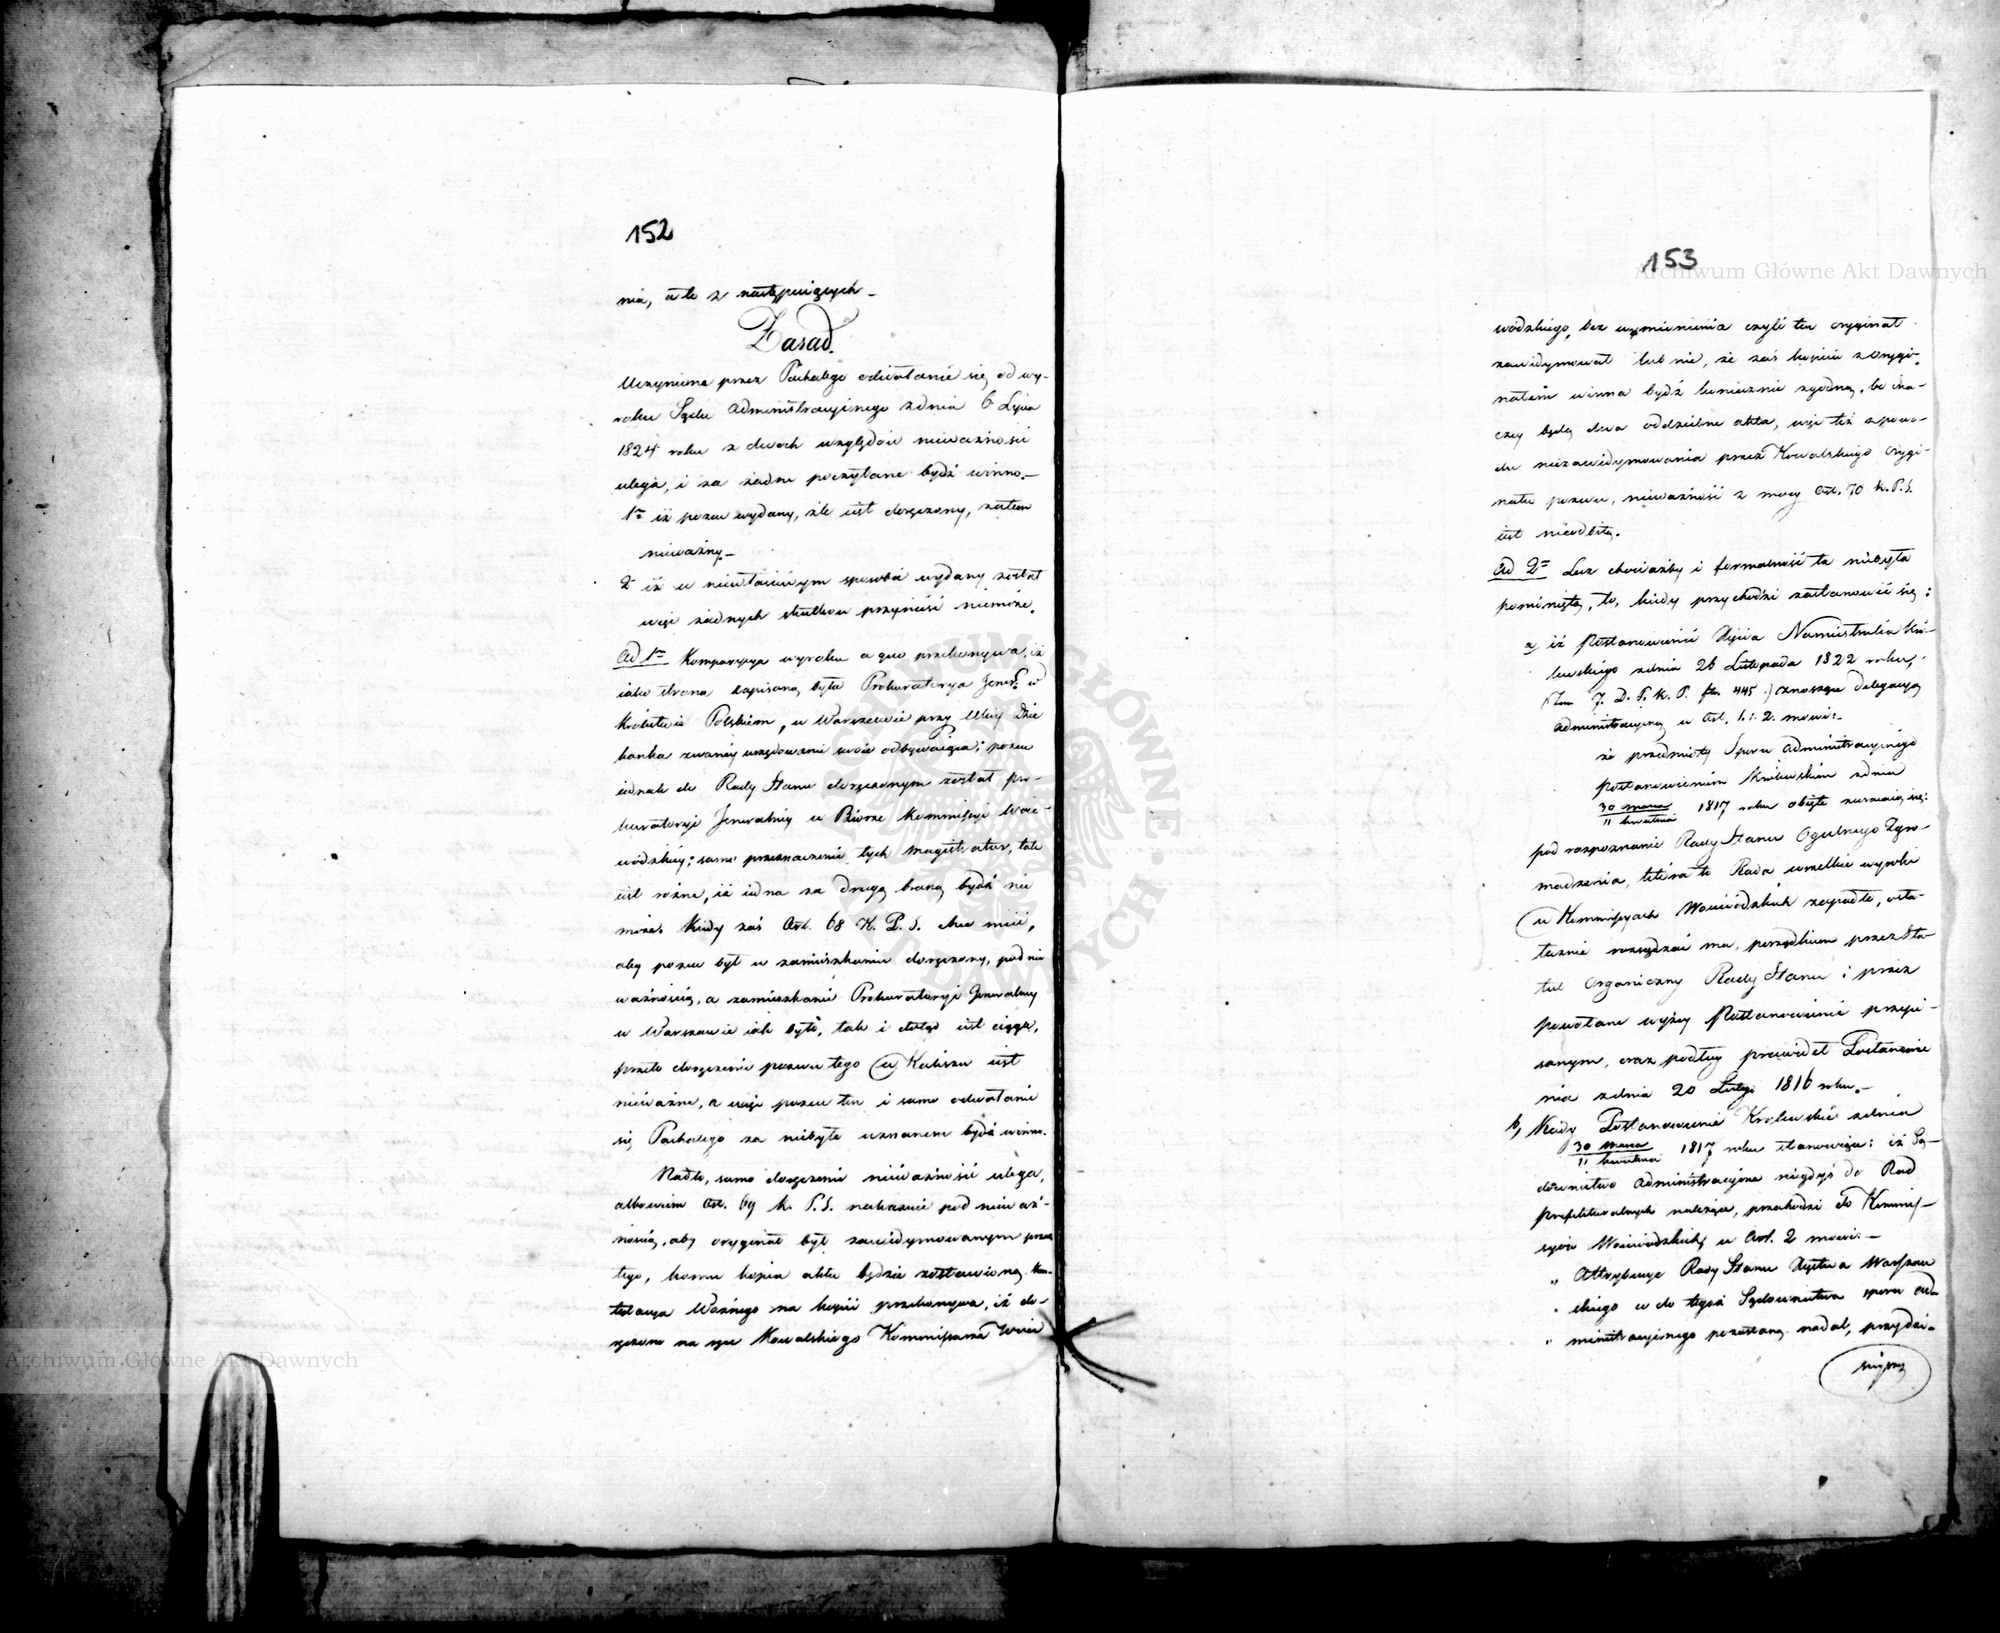 152
nia, a to z następuiących –
Zasad.
Uczynione przez Pachalego odwołanie się od wy-
roku Sądu Administracyinego z dnia 6 Lipca
1824 roku z dwoch względów nieważności
ulega, i za żadne poczytane bydź winno. –
1º iż pozew wydany, źle iest doręczony, zatem
nieważny. –
2º iż w niewłaściwym sposobie wydany został
więc żadnych skutków przynieść niemoże.
Ad 1º Komparycya wyroku a quo przekonywa, iż
iako strona zapisaną była Prokuratorya Jener: w
Królestwie Polskiem, w Warszawie przy Ulicy Dzie
kanka zwaney urzędowanie swoie odbywaiąca; pozew
iednak do Rady Stanu doręczonym został Pro-
kuratoryi Jeneralney w Biórze Kommissyi Woie-
wódzkiey; samo przeznaczenie tych Magistratur, tak
iest różne, iż iedna za drugą braną bydź nie
może. Kiedy zaś Art. 68 K. P. S. chce mieć,
aby pozew był w zamieszkaniu doręczony, pod nie
ważnością, a zamieszkanie Prokuratoryi Jeneralney
w Warszawie iak było, tak i dotąd iest ciągłe,
przeto doręczenie pozwu tego w Kaliszu iest
nieważne, a więc pozew ten i samo odwołanie
się Pachalego za niebyłe uznanem bydź winno.
Nadto, samo doręczenie nieważność ulega,
albowiem Art. 69 K. P. S. nakazuie pod nieważ-
nością, aby oryginał był zawidymowanym przez
tego, komu kopia aktu będzie zostawioną. Kon-
statacya Woźnego na kopii przekonywa, iż do-
ręczono na ręce Kowalskiego Kommissarza Woie
153
wódzkiego, bez wymienienia czyli ten oryginał
zawidymował lub nie, że zaś kopia z orygi-
nałem winna bydź koniecznie zgodną, bo ina-
czey będą dwa oddzielne akta, więc też z powo-
du niezawidymowania przez Kowalskiego orygi-
nału pozwu, nieważność z mocy Art. 70 K. P. S.
iest nieodbitą.
Ad 2º Lecz chociażby i formalność ta niebyła
pominiętą, to, kiedy przychodzi zastanowić się:
a, iż Postanowienie Xięcia Namiestnika Kró-
lewskiego z dnia 26 Listopada 1822 roku,
(Tom 7. D. P. K. P. str. 445.) znosząc Delegacyą
Administracyiną w Art. 1. i 2. mówi: –
że przedmioty Sporu Administracyinego
Postanowieniem Królewskim z dnia
30 marca
11 kwietnia 1817 roku obięte zwracaią się:
pod rozpoznanie Rady Stanu Ogulnego Zgro-
madzenia, która to Rada wszelkie wyroki
w Kommissyach Woiewódzkich zapadłe, osta-
tecznie rozsądzać ma, porządkiem przez Sta-
tut Organiczny Rady Stanu i przez
powołane wyżey Postanowienie przepi-
sanym, oraz podług prawideł Postanowie
nia z dnia 20 Lutego 1816 roku. –
b, Kiedy Postanowienie Królewskie z dnia
30 marca
11 kwietnia 1817 roku stanowiąc: iż Są-
downictwo Administracyine niegdyś do Rad
Prefekturalnych należące, przechodzi do Kommis-
syów Woiewódzkich w Art. 2 mówi: –
„ Attrybucye Rady Stanu Xięstwa Warszaw
„ skiego w do tegoż Sądownictwa sporu Ad-
„ ministracyinego pozostaną nadal, przydzi-